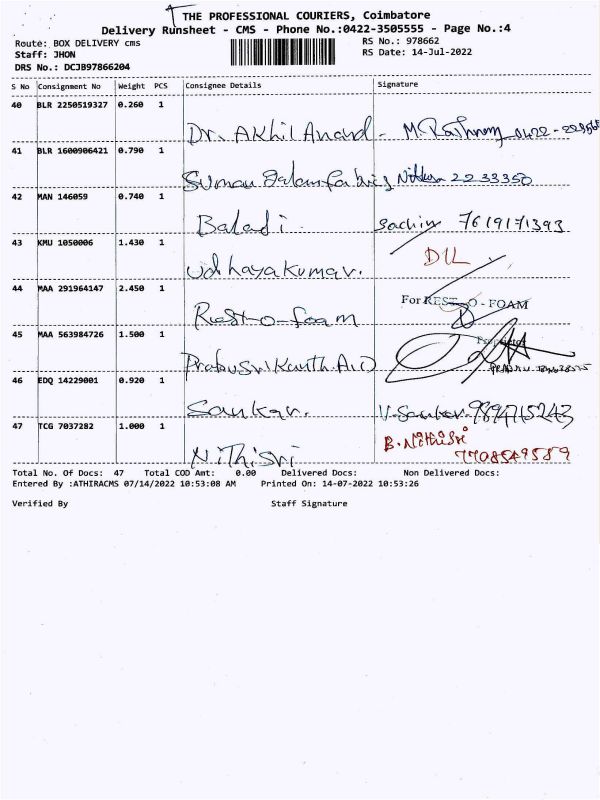 THE PROFESSIONAL COURIERS, Coimbatore
Delivery Runsheet - CMS - Phone No.:0422-3505555 - Page No.:4
Route: BOX DELIVERY cms RS No.: 978662
Staff: JHON RS Date: 14-Jul-2022
DRS No.: DCJB97866204
S No Consignment No Weight PCS Consignee Details Signature
40 BLR 2250519327 0.260 1
Dr. Akhil Anand - 0422 -
41 BLR 1600906421 0.790 1
Suman 2233350
42 MAN 146059 0.740 1
Baladi Sachin 7619171393
43 KMU 1050006 1.430 1
Udhayakumar. D/L
44 MAA 291964147 2.450 1
Rest-o-foam For REST-O-FOAM
45 MAA 563984726 1.500 1
Proprietor
Prabu Srikanth. A.D
46 EDQ 14229001 0.920 1
Sankar. V. Sankar. 9894715243
47 TCG 7037282 1.000 1
Nithisri B. Nithisri
7708549589
Total No. Of Docs: 47 Total COD Amt: 0.00 Delivered Docs: Non Delivered Docs:
Entered By :ATHIRACMS 07/14/2022 10:53:08 AM Printed On: 14-07-2022 10:53:26
Verified By Staff Signature